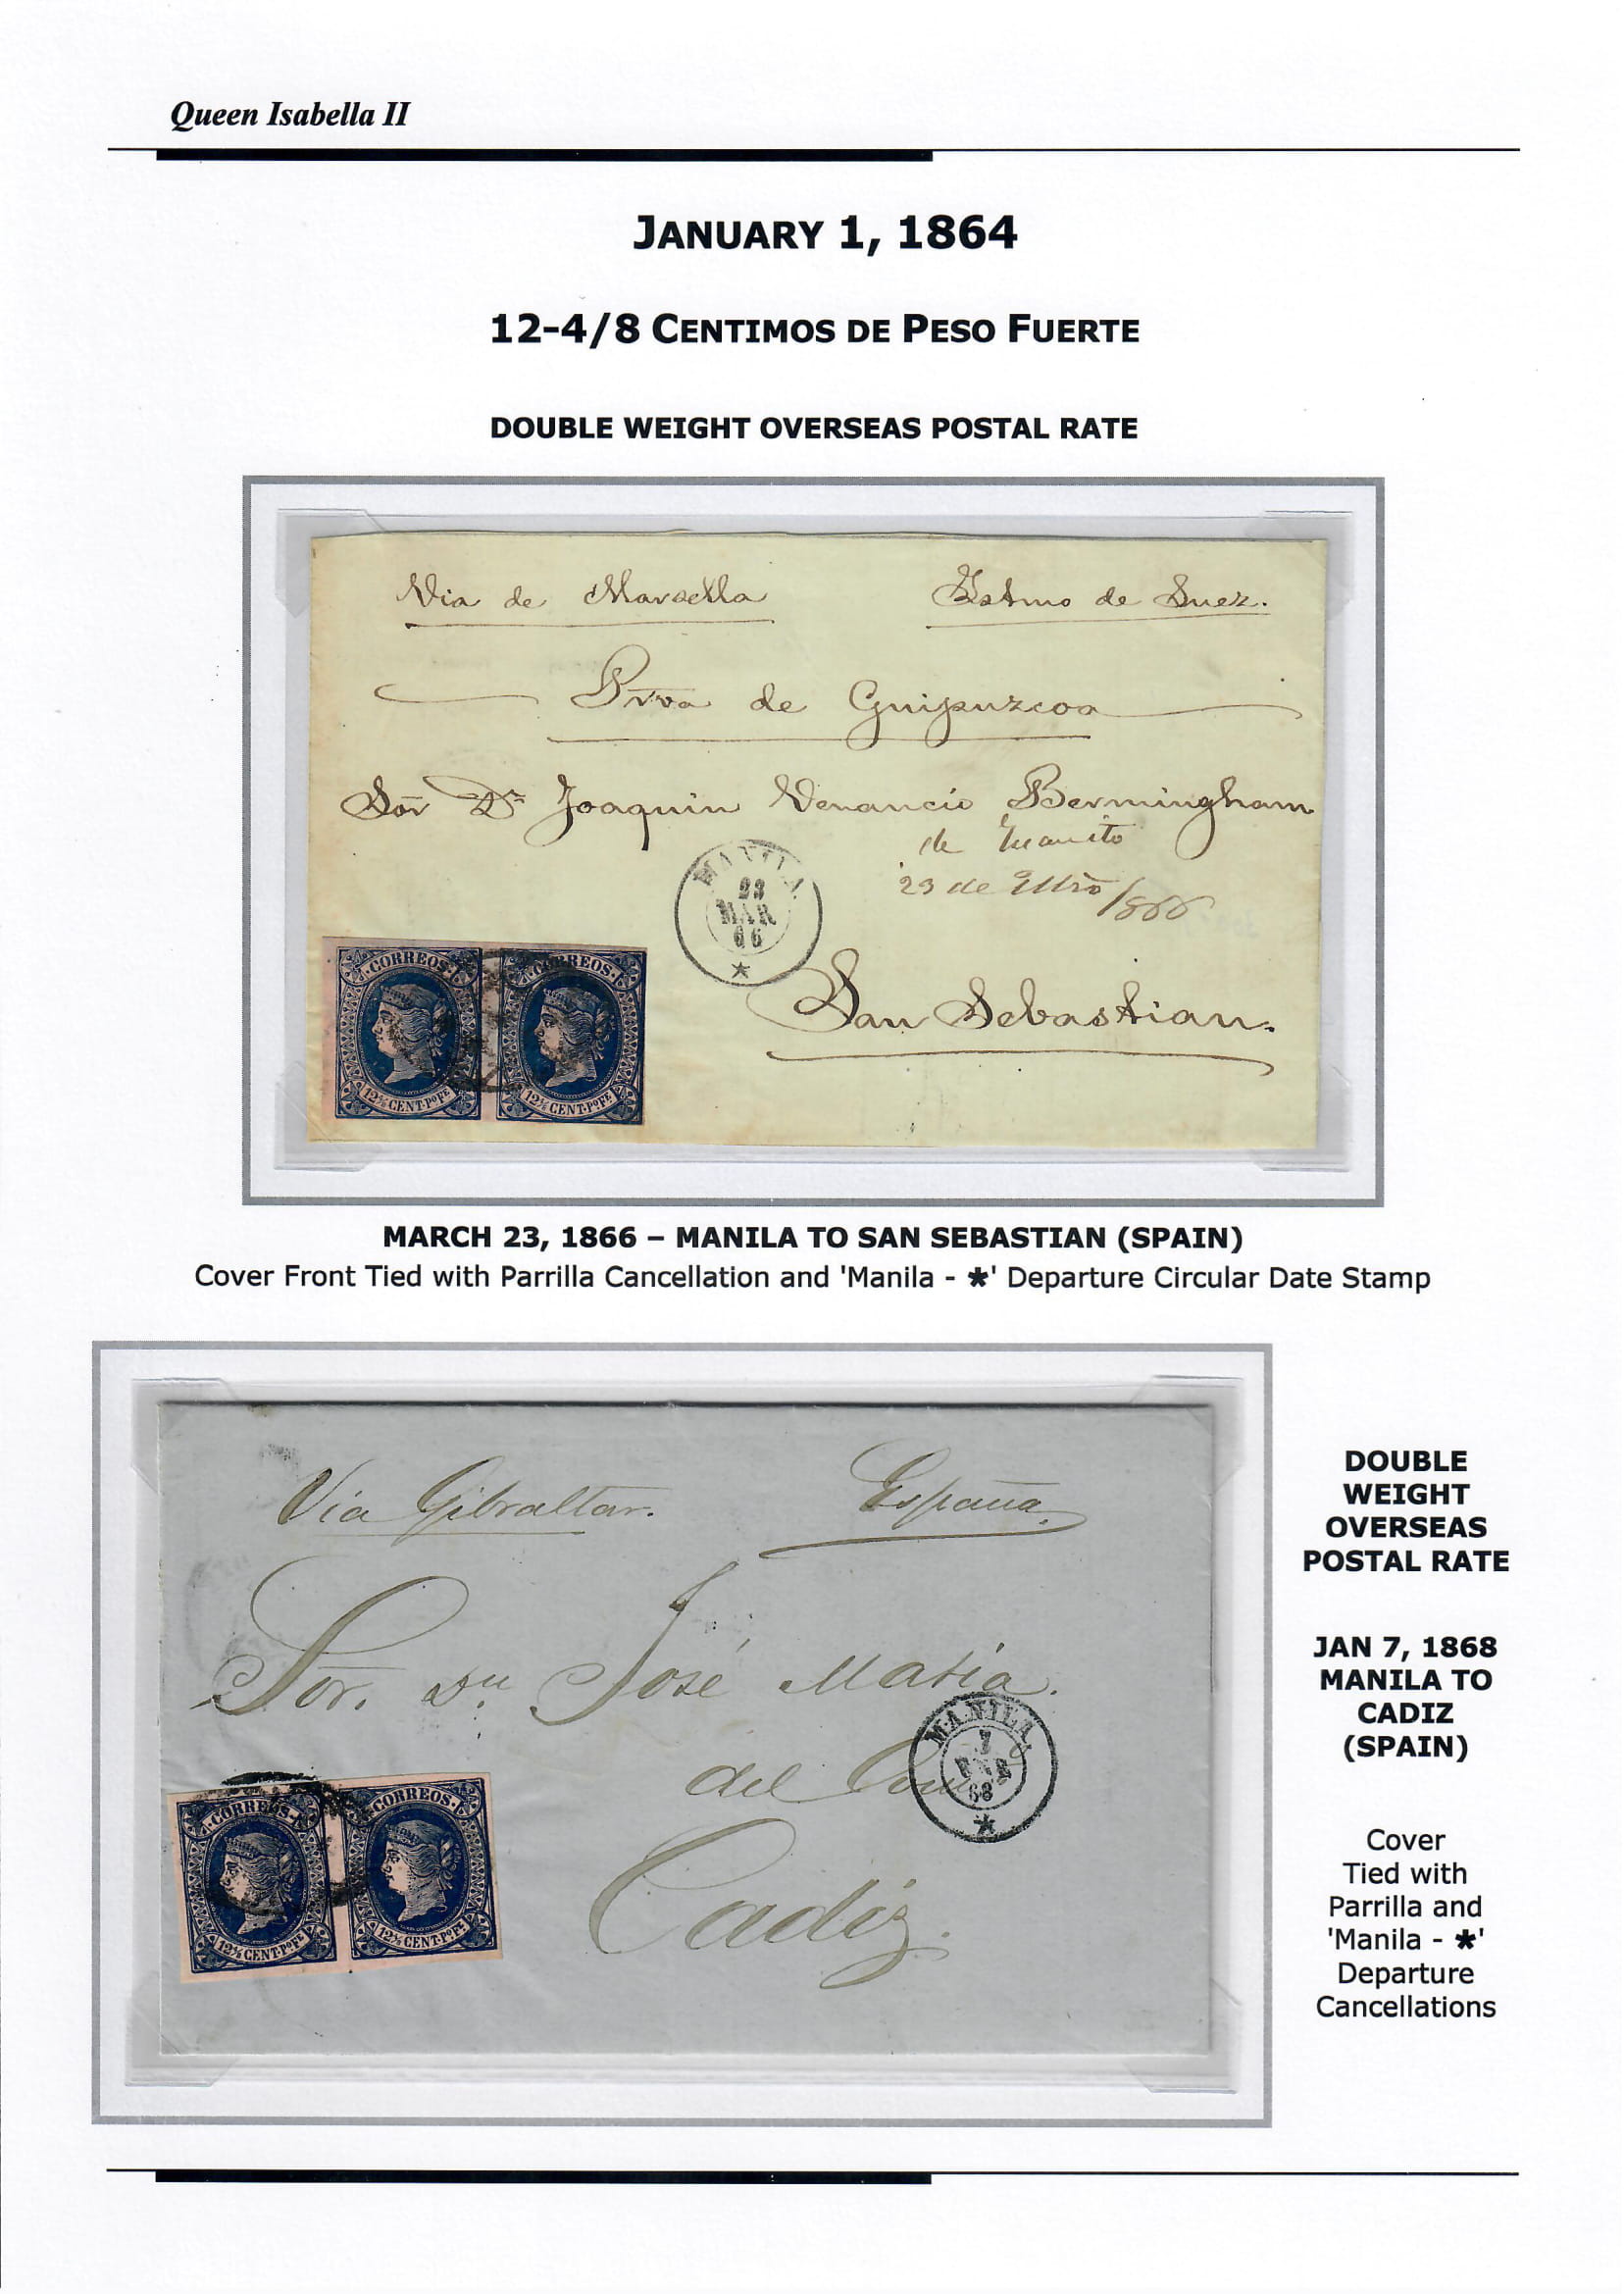 Queen Isabella II
JANUARY 1, 1864
12-4/8 CENTIMOS DE PESO FUERTE
DOUBLE WEIGHT OVERSEAS POSTAL RATE
Via de Marsella
Istmo de Suez.
Prva de Guipuzcoa
Sor Dn Joaquin Venancio Bermingham
de Juanito
23 de
/866
MANILA
23
MAR
66
★
San Sebastian.
CORREOS
12 4/8 CENT. Po Fe
CORREOS
12 4/8 CENT. Po Fe
MARCH 23, 1866 – MANILA TO SAN SEBASTIAN (SPAIN)
Cover Front Tied with Parrilla Cancellation and 'Manila - ★' Departure Circular Date Stamp
Via Gibraltar.
España.
Sor. Dn José Matia.
del
MANILA
7
ENE
68
★
Cadiz.
CORREOS
12 4/8 CENT. Po Fe
CORREOS
12 4/8 CENT. Po Fe
DOUBLE
WEIGHT
OVERSEAS
POSTAL RATE
JAN 7, 1868
MANILA TO
CADIZ
(SPAIN)
Cover
Tied with
Parrilla and
'Manila - ★'
Departure
Cancellations